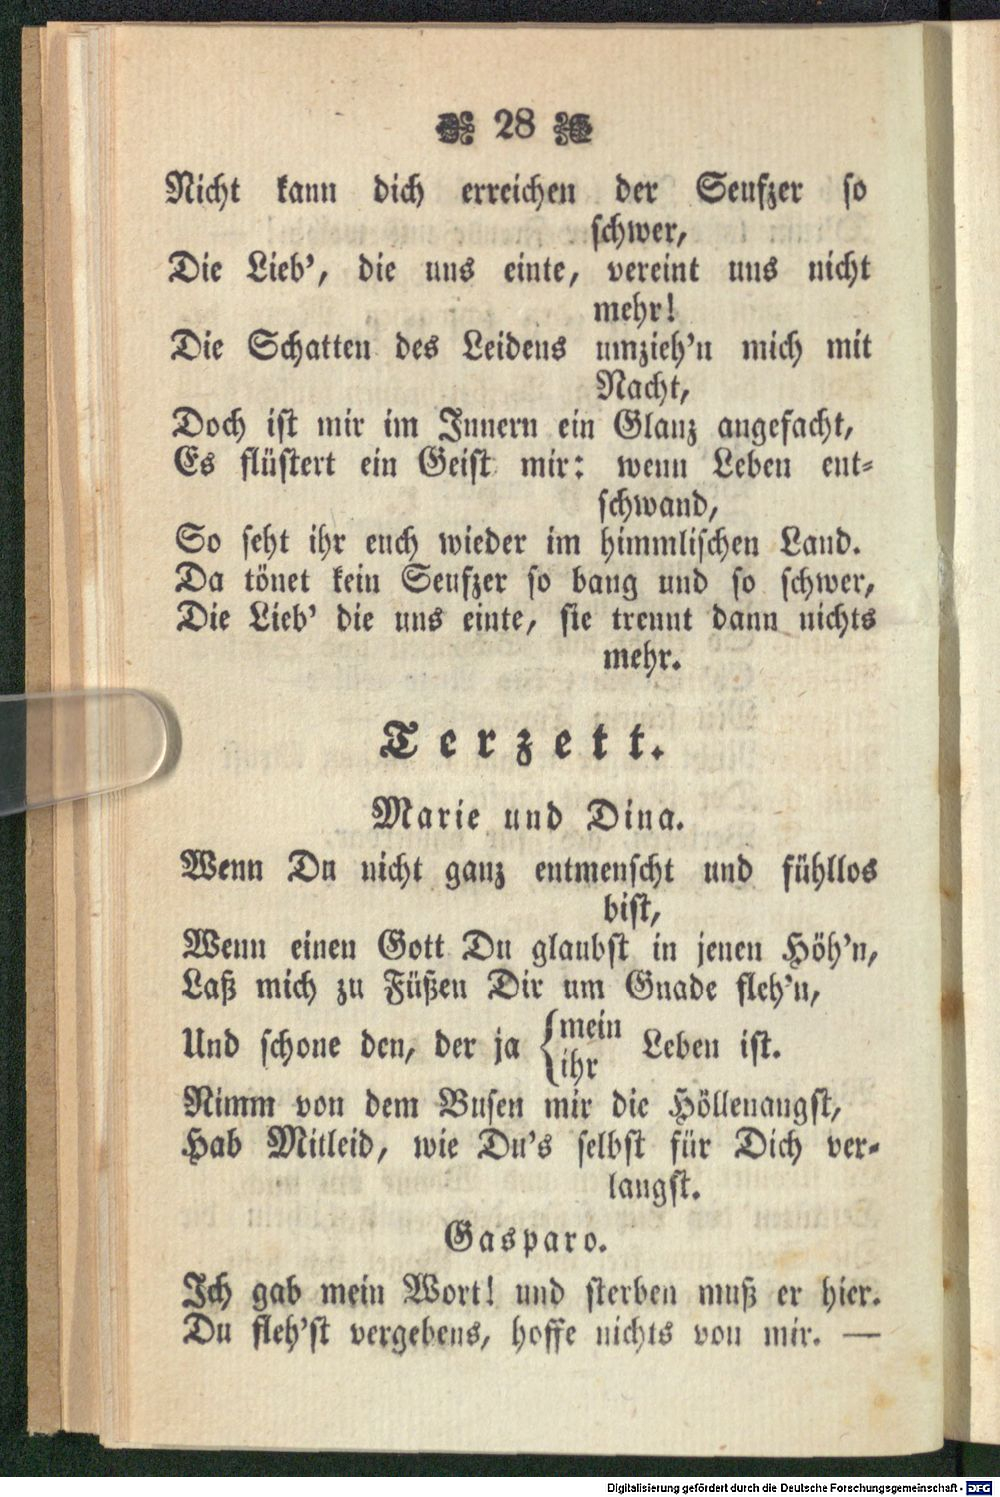 28
Nicht kann dich erreichen der Seufzer so
schwer,
Die Lieb', die uns einte, vereint uns nicht
mehr!
Die Schatten des Leidens umzieh'n mich mit
Nacht,
Doch ist mir im Innern ein Glanz angefacht,
Es flüstert ein Geist mir: wenn Leben ent-
schwand,
So seht ihr euch wieder im himmlischen Land.
Da tönet kein Seufzer so bang und so schwer,
Die Lieb' die uns einte, sie trennt dann nichts
mehr.
Terzett.
Marie und Dina.
Wenn Du nicht ganz entmenscht und fühllos
bist,
Wenn einen Gott Du glaubst in jenen Höh'n,
Laß mich zu Füßen Dir um Gnade fleh'n,
Und schone den, der ja {mein
ihr Leben ist.
Nimm von dem Busen mir die Höllenangst,
Hab Mitleid, wie Du's selbst für Dich ver-
langst.
Gasparo.
Ich gab mein Wort! und sterben muß er hier.
Du fleh'st vergebens, hoffe nichts von mir. —
Digitalisierung gefördert durch die Deutsche Forschungsgemeinschaft - DFG